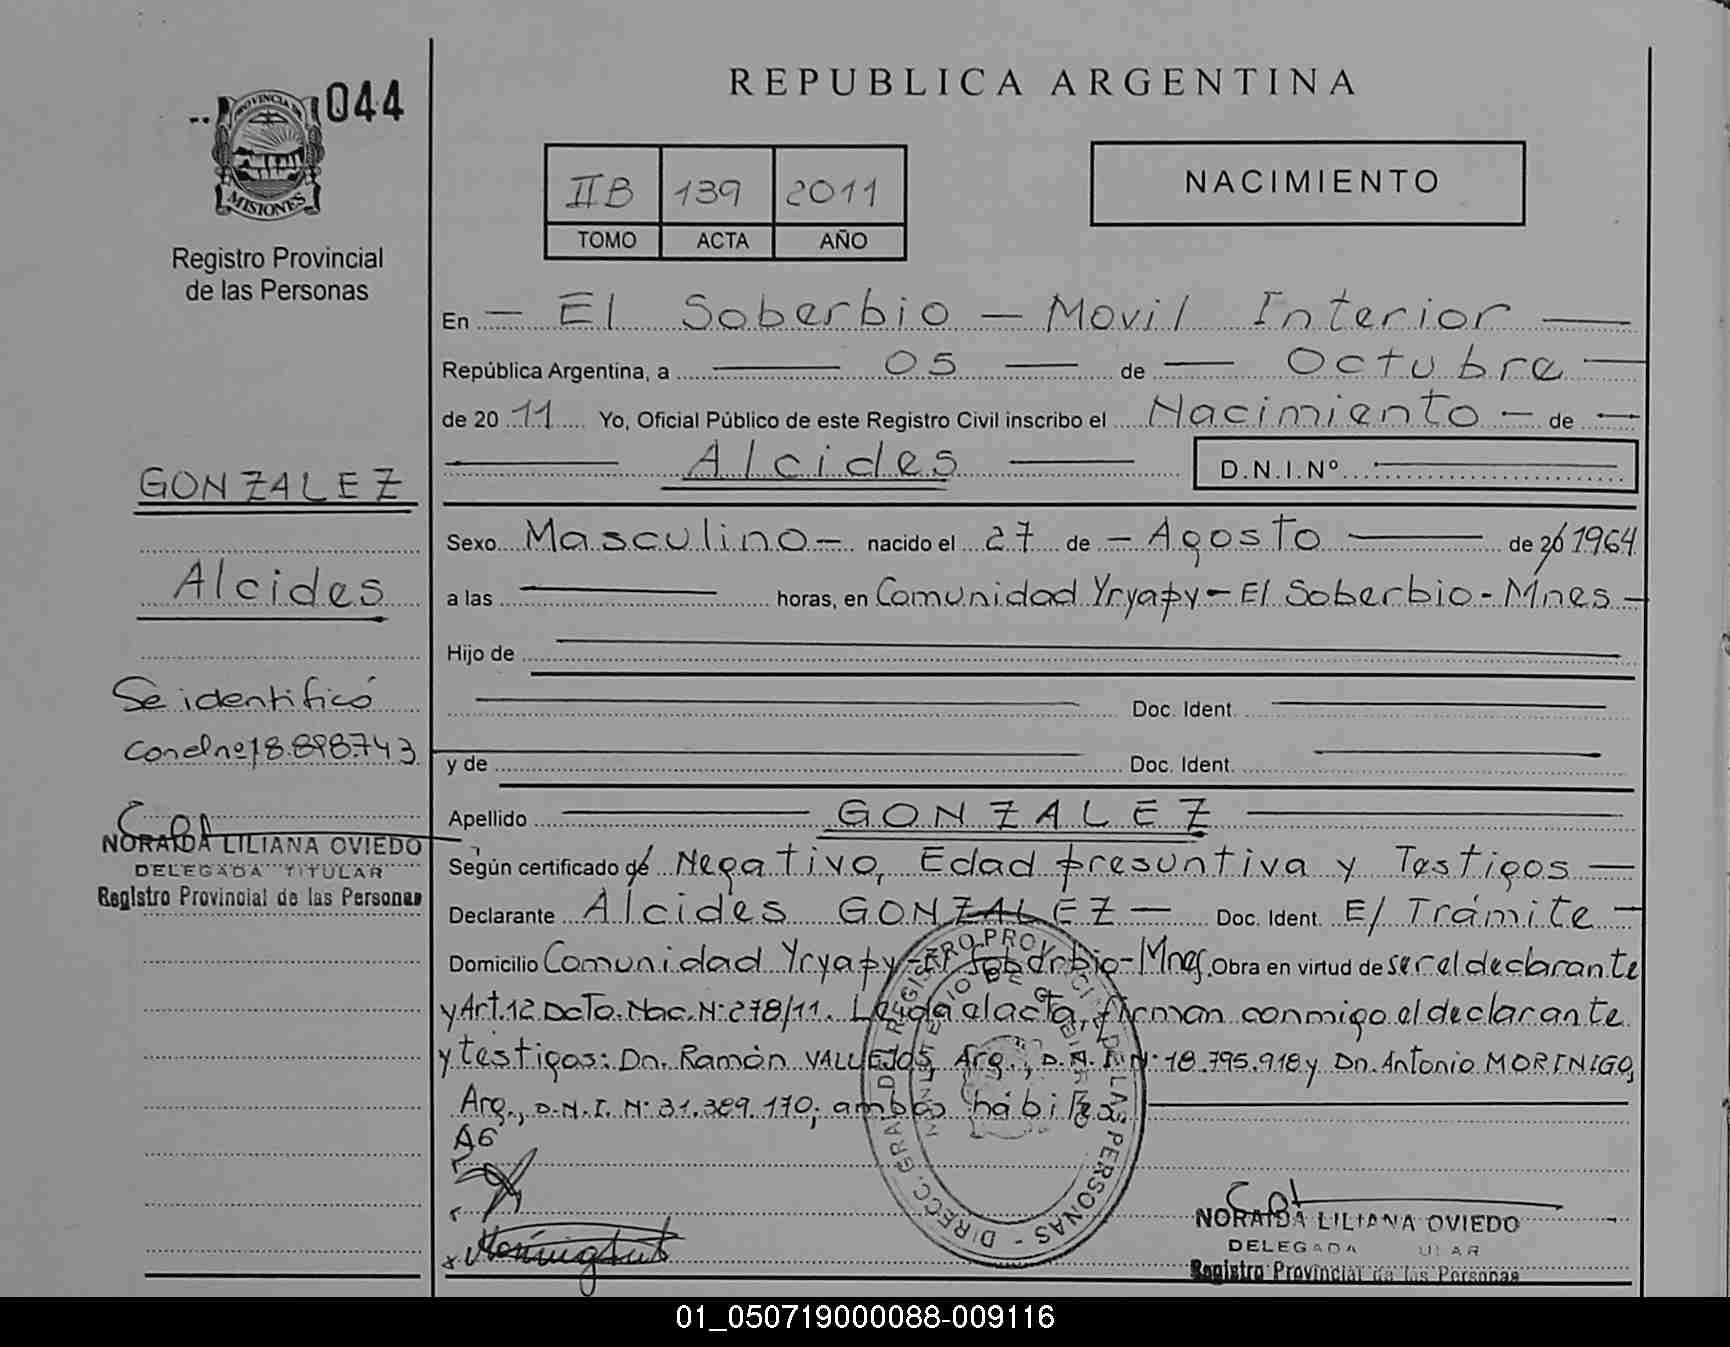 044
PROVINCIA DE
MISIONES
Registro Provincial
de las Personas
GONZALEZ
Alcides
Se identificó
con el nº 18.898.743
NORAIDA LILIANA OVIEDO
DELEGADA TITULAR
Registro Provincial de las Personas
REPUBLICA ARGENTINA
II B 139 2011
TOMO ACTA AÑO
NACIMIENTO
En — El Soberbio — Movil Interior —
República Argentina, a — 05 — de — Octubre —
de 20 11 Yo, Oficial Público de este Registro Civil inscribo el Nacimiento — de —
— Alcides — D.N.I.Nº —
Sexo Masculino — nacido el 27 de — Agosto — de 20 1964
a las — horas, en Comunidad Yryapy — El Soberbio - Mnes —
Hijo de —
— Doc. Ident. —
y de — Doc. Ident. —
Apellido — GONZALEZ —
Según certificado de Negativo, Edad presuntiva y Testigos —
Declarante Alcides GONZALEZ — Doc. Ident. E/ Trámite —
Domicilio Comunidad Yryapy - El Soberbio - Mnes. Obra en virtud de ser el declarante
y Art. 12 Dcto. Nac. Nº 278/11. Leída el acta, firman conmigo el declarante
y testigos: Dn. Ramón VALLEJOS, Arg., D.N.I. Nº 18.795.918 y Dn. Antonio MORINIGO,
Arg., D.N.I. Nº 31.389.170; ambos hábiles —
AG
DIRECC. GRAL. DEL REGISTRO PROVINCIAL DE LAS PERSONAS
MINISTERIO DE GOBIERNO
NORAIDA LILIANA OVIEDO
DELEGADA ULAR
Registro Provincial de las Personas
01_050719000088-009116